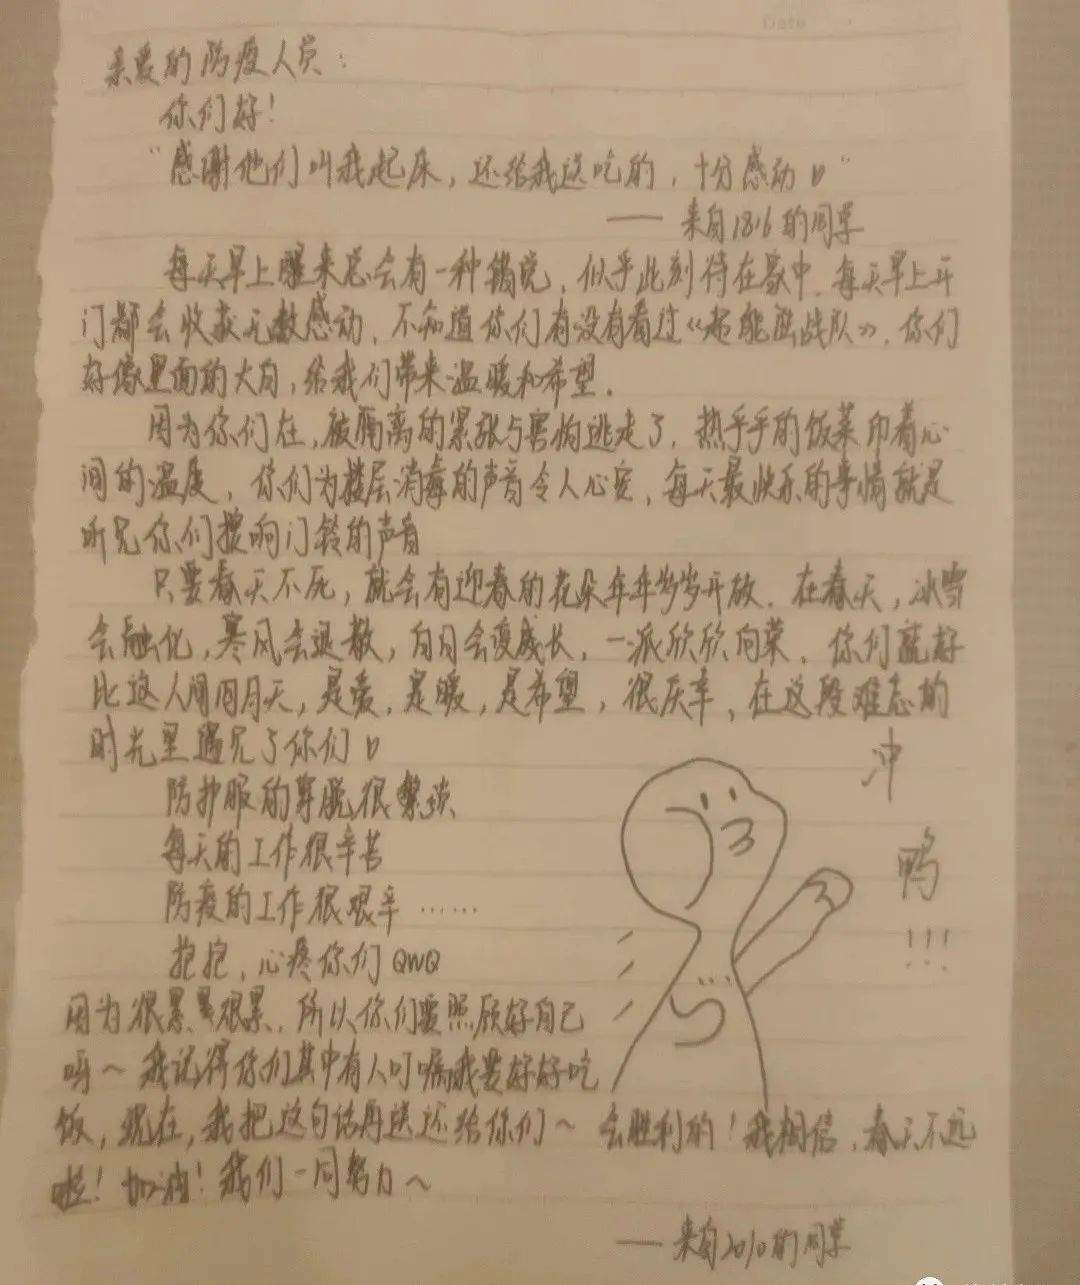 Date
亲爱的防疫人员：
你们好！
“感谢他们叫我起床，还给我送吃的，十分感动”
—— 来自1816的同学
每天早上醒来总会有一种错觉，似乎此刻待在家中，每天早上开
门都会收获无数感动，不知道你们有没有看过《超能陆战队》，你们
好像里面的大白，给我们带来温暖和希望。
因为你们在，被隔离的紧张与害怕逃走了，热乎乎的饭菜印着心
间的温度，你们为楼层消毒的声音令人心安，每天最快乐的事情就是
听见你们摁响门铃的声音
只要春天不死，就会有迎春的花朵年年岁岁开放。在春天，冰雪
会融化，寒风会退散，白日会变成长，一派欣欣向荣，你们就好
比这人间四月天，是爱，是暖，是希望，很庆幸，在这段难忘的
时光里遇见了你们
防护服的穿脱很繁琐
每天的工作很辛苦
防疫的工作很艰辛……
抱抱，心疼你们QWQ
因为很累很累，所以你们要照顾好自己
呀～我记得你们其中有人叮嘱我要好好吃
饭，现在，我把这句话再送还给你们～会胜利的！我相信，春天不远
啦！加油！我们一同努力～
—— 来自2010的同学
冲
鸭
!!!